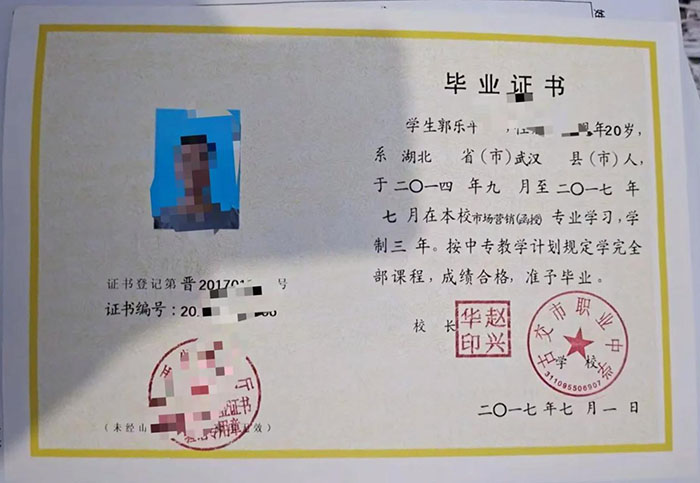 毕业证书
学生郭乐 年20岁,
系 湖北 省(市)武汉 县(市)人,
于二〇一四 年九 月至二〇一七 年
七 月在本校市场营销(函授) 专业学习,学
制三 年。按中专教学计划规定学完全
部课程,成绩合格,准予毕业。
校 长
赵兴华印
古交市职业中学校
311095506907
二〇一七年七月一日
证书登记第 晋20170 号
证书编号:20
业证书
专用章
(未经山 效)